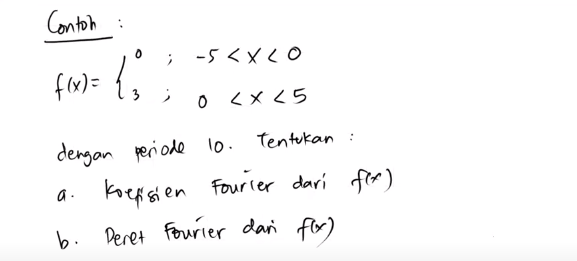 Contoh :
f(x) = { 0 ; -5 < x < 0
3 ; 0 < x < 5
dengan periode 10. Tentukan :
a. Koefisien Fourier dari f(x)
b. Deret Fourier dari f(x)